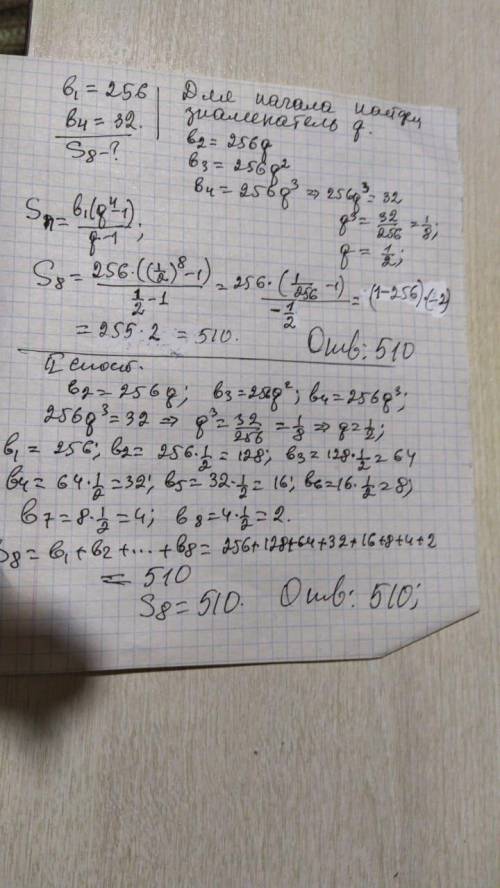 в₁ = 256
в₄ = 32.
S₈ - ?
Для начала найдем
знаменатель q.
в₂ = 256q
в₃ = 256q²
в₄ = 256q³ ⇒ 256q³ = 32
q³ = 32/256 = 1/8;
q = 1/2;
Sₙ = в₁(q⁴-1)/(q-1);
S₈ = 256·((1/2)⁸-1)/(1/2-1) = 256·(1/256-1)/(-1/2) = (1-256)·(-2)
= 255·2 = 510.
Отв: 510
II способ.
в₂ = 256q; в₃ = 256q²; в₄ = 256q³;
256q³ = 32 ⇒ q³ = 32/256 = 1/8 ⇒ q = 1/2;
в₁ = 256; в₂ = 256·1/2 = 128; в₃ = 128·1/2 = 64
в₄ = 64·1/2 = 32; в₅ = 32·1/2 = 16; в₆ = 16·1/2 = 8;
в₇ = 8·1/2 = 4; в₈ = 4·1/2 = 2.
S₈ = в₁ + в₂ + ... + в₈ = 256+128+64+32+16+8+4+2
= 510
S₈ = 510. Отв: 510;